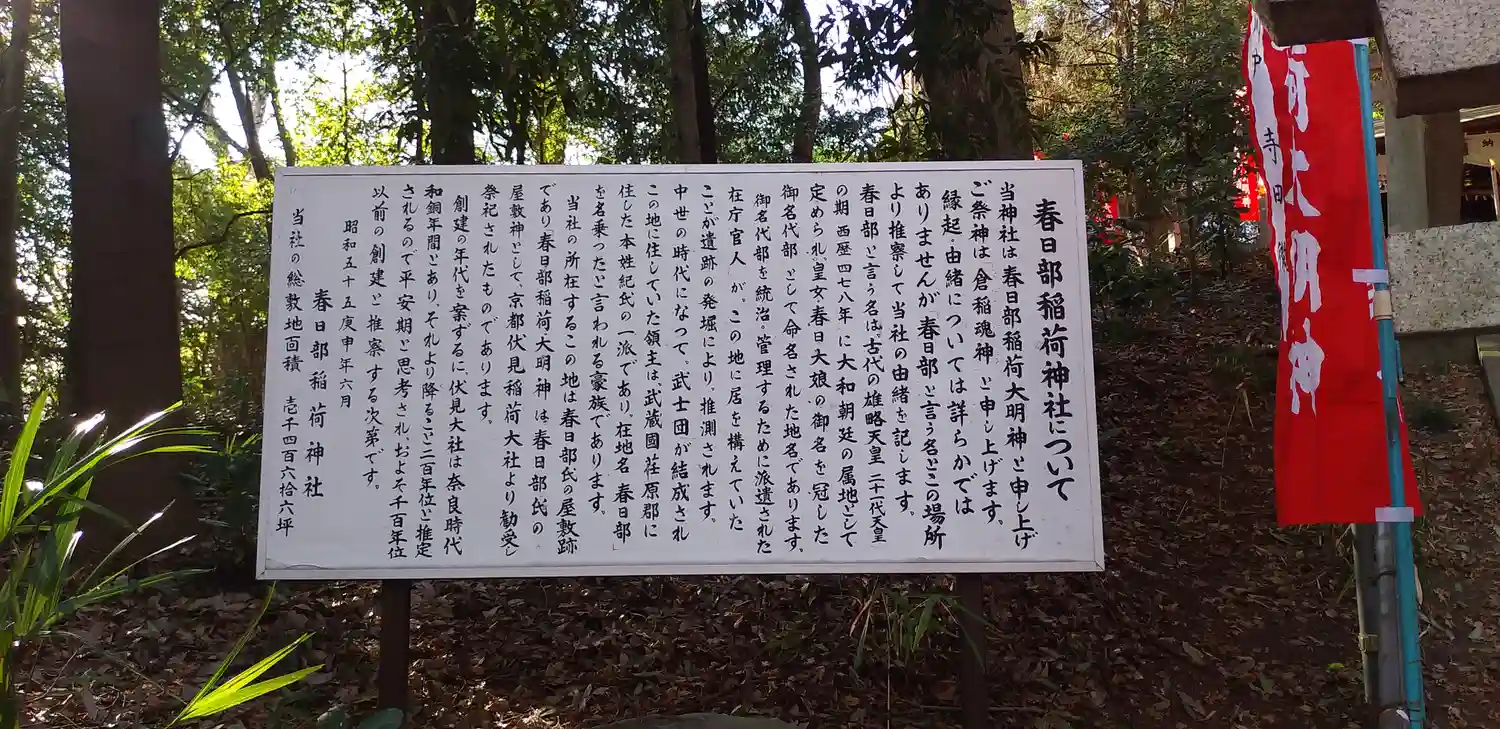 春日部稲荷神社について
当神社は春日部稲荷大明神と申し上げ
ご祭神は倉稲魂神と申し上げます。
縁起・由緒については詳らかでは
ありませんが、春日部と言う名とこの場所
より推察して当社の由緒を記します。
春日部と言う名は古代の雄略天皇二十一代天皇
の期西歴四七八年に大和朝廷の属地として
定められ、皇女春日大娘の御名を冠した
御名代部として命名された地名であります。
御名代部を統治。管理するために派遣された
在庁官人が、この地に居を構えていた
ことが遺跡の発堀により、推測されます。
中世の時代になって、武士団が結成され
この地に住していた領主は、武蔵國荏原郡に
住した本姓紀氏の一派であり、在地名「春日部」
を名乗ったと言われる豪族であります。
当社の所在するこの地は春日部氏の屋敷跡
であり、春日部稲荷大明神は春日部氏の
屋敷神として、京都伏見稲荷大社より勧受し
祭祀されたものであります。
創建の年代を案ずるに、伏見大社は奈良時代
和銅年間とあり、それより降ること二百年位と推定
されるので平安期と思考され、およそ千百年位
以前の創建と推察する次第です。
昭和五十五庚申年六月
春日部稲荷神社
当社の総敷地面積 壱千四百六拾六坪
荷大明神
寺田
納